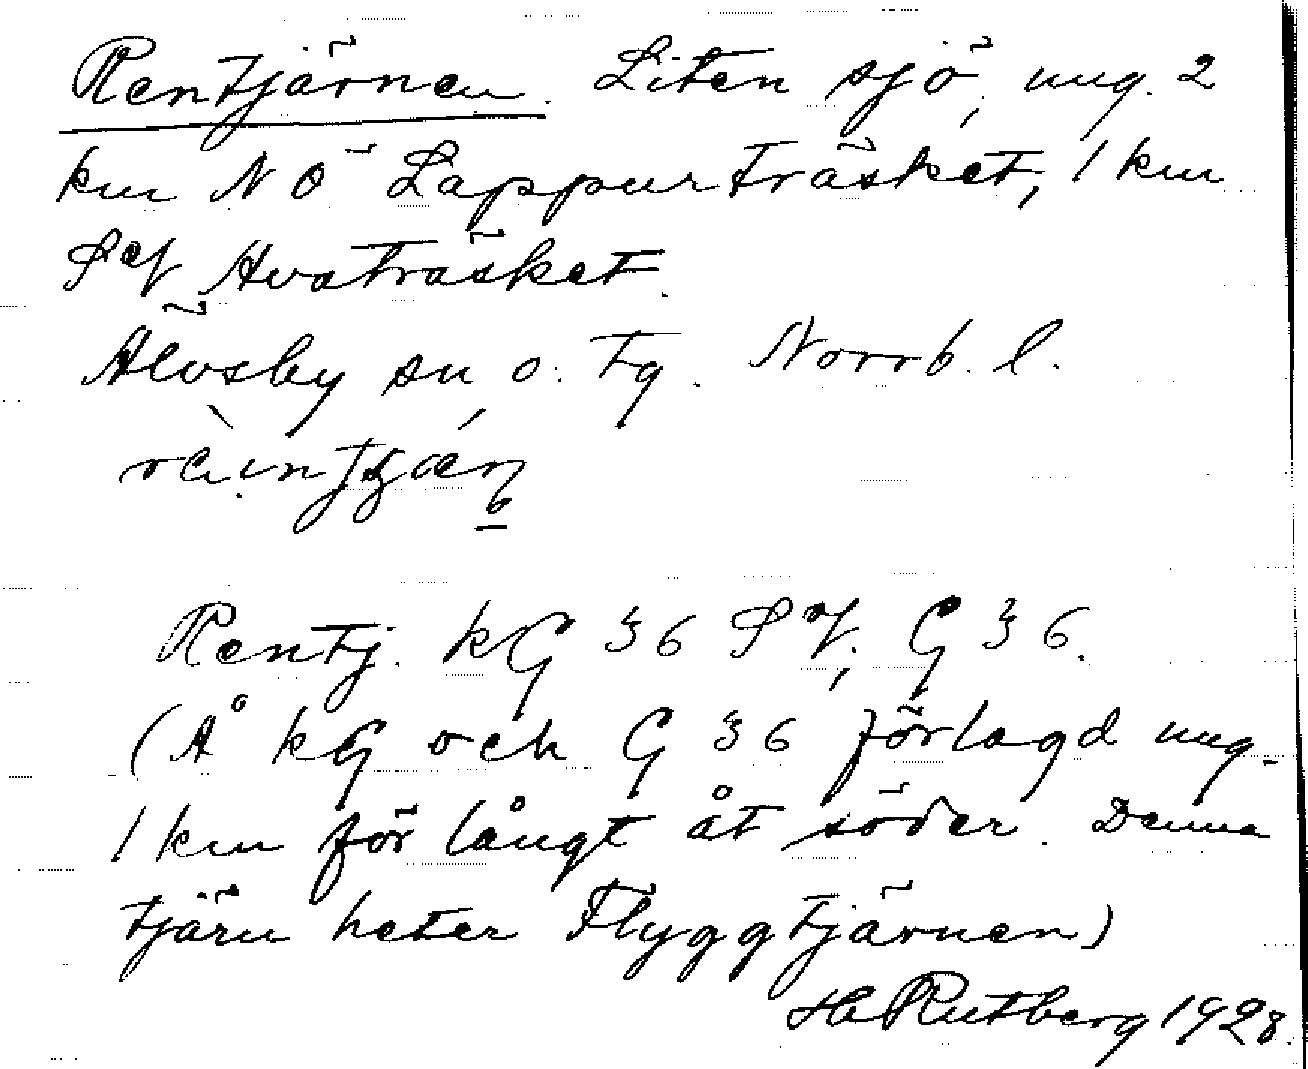 Rentjärnen. Liten sjö, ung. 2
km NÖ Lappurträsket, 1 km
SV Avaträsket.
Älvsby sn o. tg. Norrb. l.
Rentj. kG 36 SV, G 36.
(Å kG och G 36 förlagd ung.
1 km för långt åt söder. Denna
tjärn heter Flyggtjärnen)
H. Rutberg 1928.